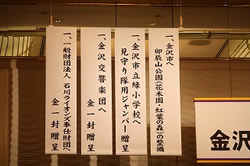 一、金沢市へ
卯辰山公園(花木園・紅葉の森)の整備
一、金沢市立緑小学校へ
見守り隊用ジャンパー贈呈
一、金沢交響楽団へ
金一封贈呈
一、一般財団法人 石川ライオンズ奉仕財団へ
金一封贈呈
金沢